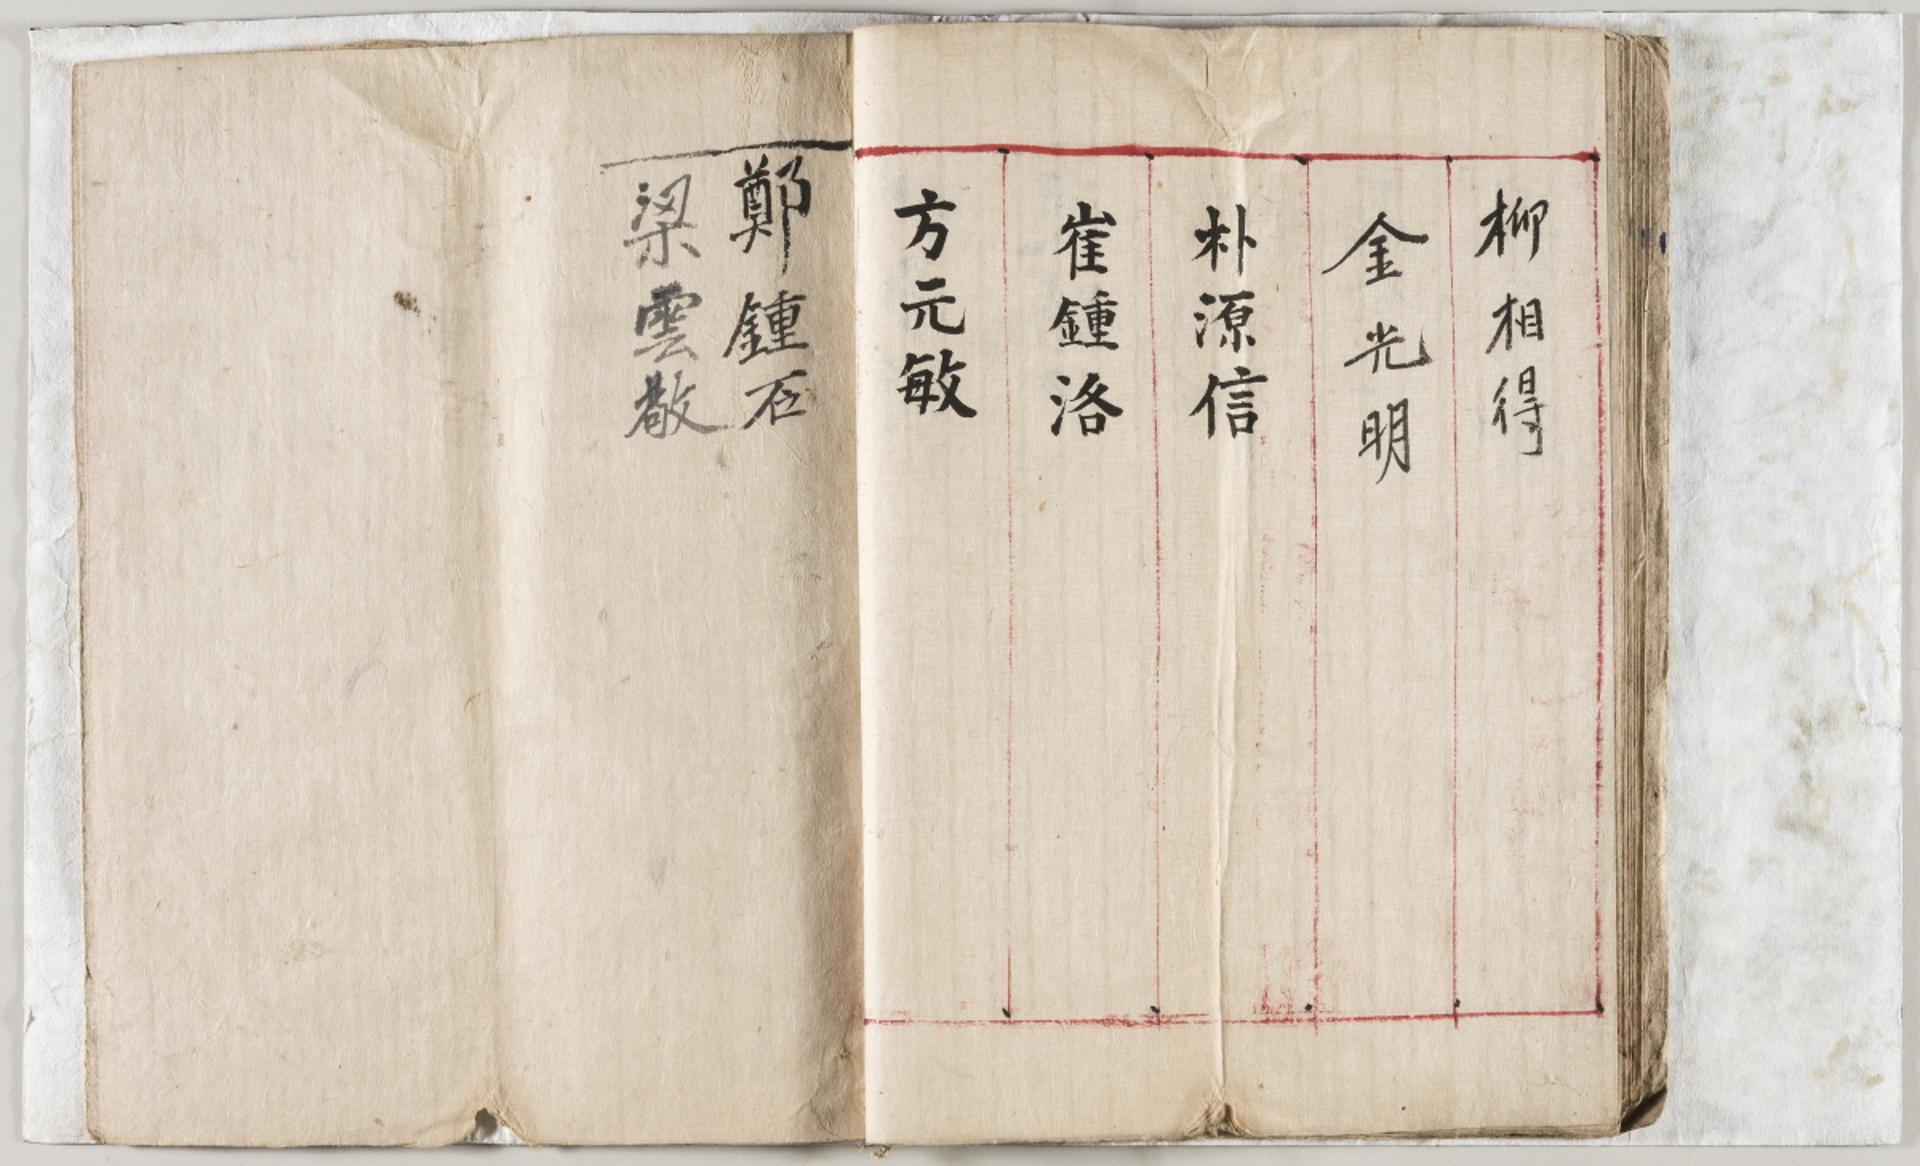 柳相得
金光明
朴源信
崔鍾洛
方元敏
鄭鍾石
梁雲敬